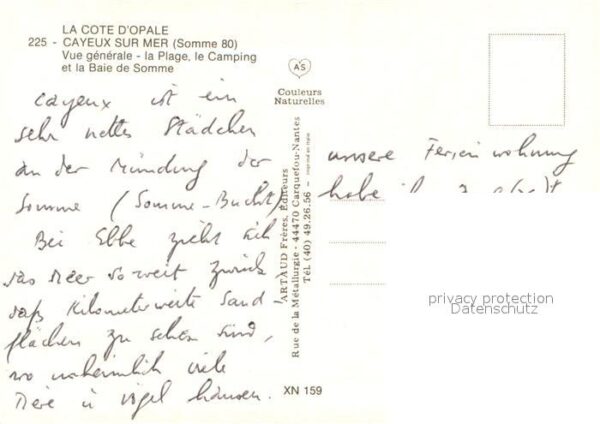 LA COTE D'OPALE
225 - CAYEUX SUR MER (Somme 80)
Vue générale - la Plage, le Camping
et la Baie de Somme
Cayeux ist ein
sehr nettes Städchen
an der Mündung der
Somme (Somme-Bucht).
Bei Ebbe zieht sich
das Meer so weit zurück
daß kilometerweite Sand
flächen zu sehen sind,
wo unheimlich viele
Tiere u Vögel hausen.
A S
Couleurs
Naturelles
"ARTAUD Frères, Éditeurs
Rue de la Métallurgie - 44470 Carquefou-Nantes
Tél. (40) 49.26.56 -
XN 159
unsere Ferienwohnung
habe
privacy protection
Datenschutz